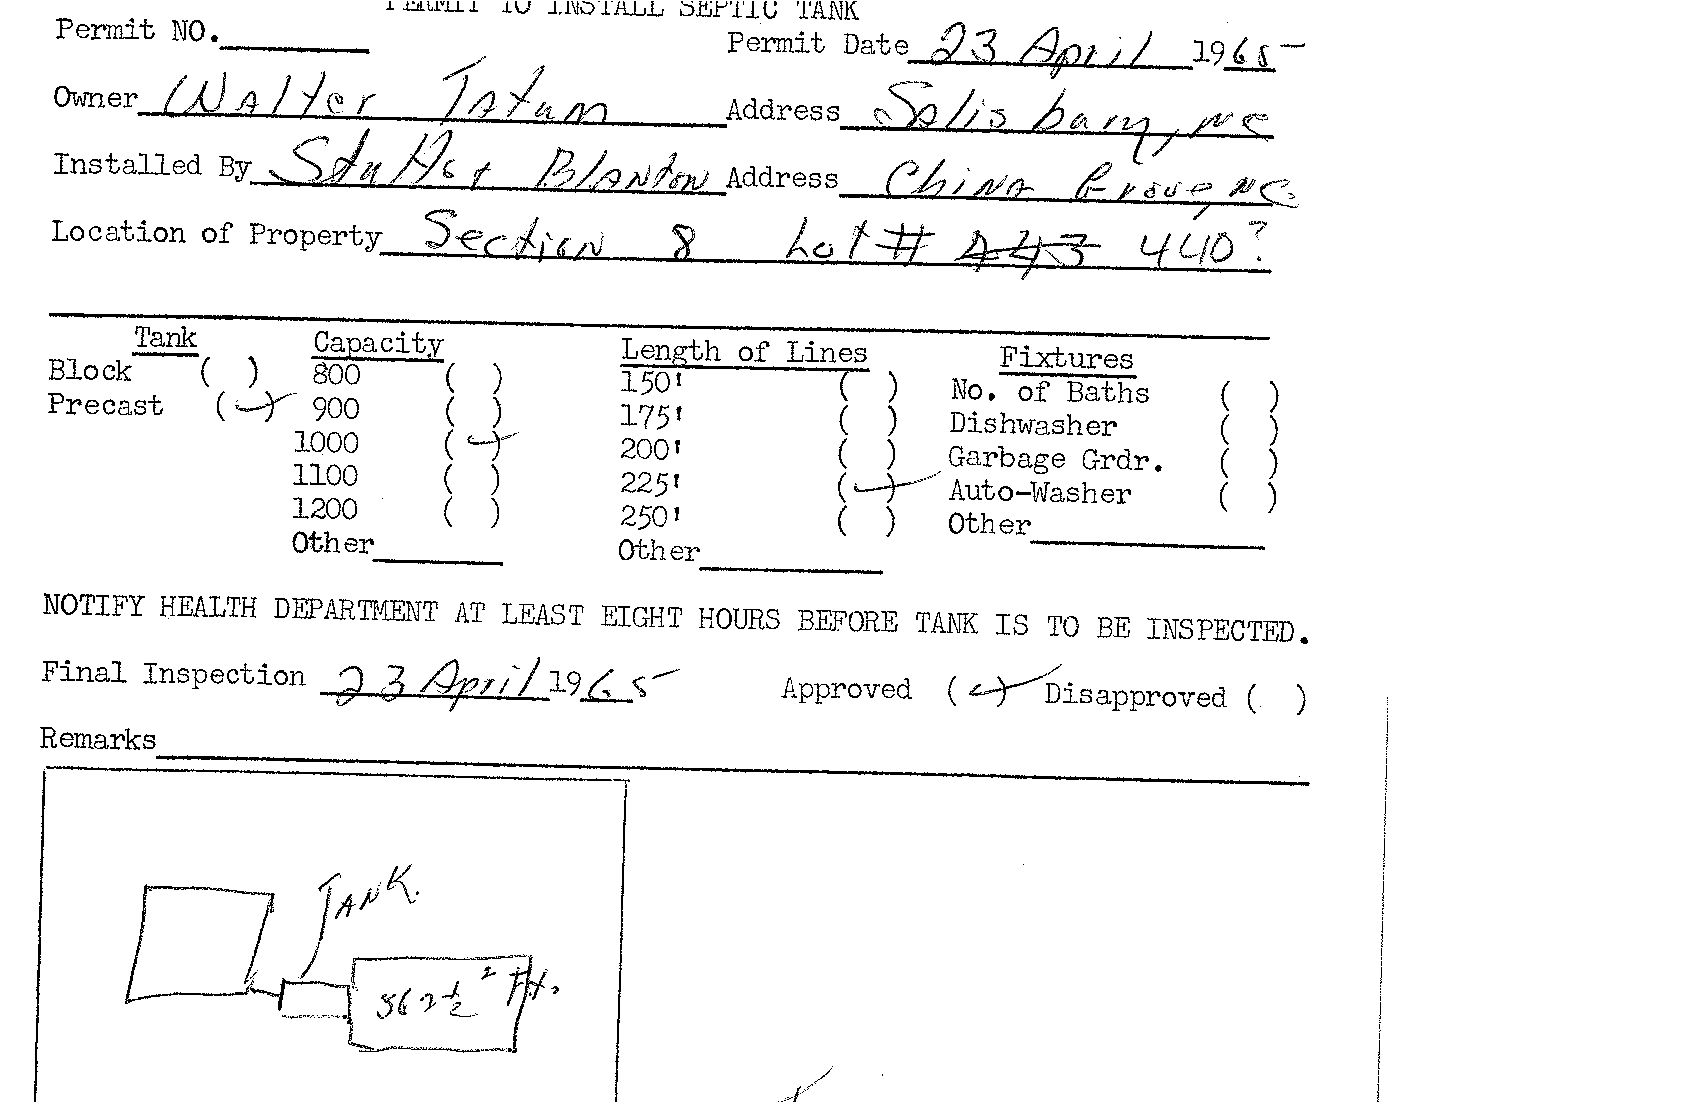 PERMIT TO INSTALL SEPTIC TANK
Permit NO. Permit Date 23 April 1965
Owner Walter Tatum Address Salisbury, NC
Installed By Blanton Address China Grove, NC.
Location of Property Section 8 Lot # 443 440?
Tank Capacity Length of Lines Fixtures
Block ( ) 800 ( ) 150' ( ) No. of Baths ( )
Precast (✓) 900 ( ) 175' ( ) Dishwasher ( )
1000 (✓) 200' ( ) Garbage Grdr. ( )
1100 ( ) 225' (✓) Auto-Washer ( )
1200 ( ) 250' ( ) Other
Other Other
NOTIFY HEALTH DEPARTMENT AT LEAST EIGHT HOURS BEFORE TANK IS TO BE INSPECTED.
Final Inspection 23 April 1965 Approved (✓) Disapproved ( )
Remarks
TANK.
562 1/2 ² Ft.